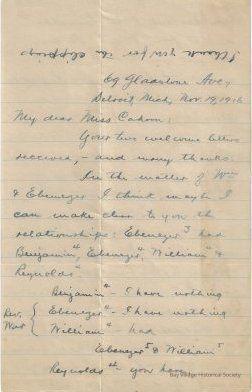 I thank you for the clippings
69 Gladstone Ave.,
Detroit, Mich, Nov. 19, 1916
My dear Miss Cahoon:
Your two welcome letters
received, - and many thanks.
In the matter of Wm
& Ebenezer I think maybe I
can make clear to you the
relationships: Ebenezer³ had
Benjamin⁴, Ebenezer⁴, William⁴ &
Reynolds⁴
Benjamin⁴ - I have nothing
Rev. War { Ebenezer⁴ - I have nothing
William⁴ - had
Ebenezer⁵ & William⁵
Reynolds⁴ - you have
Bay Village Historical Society